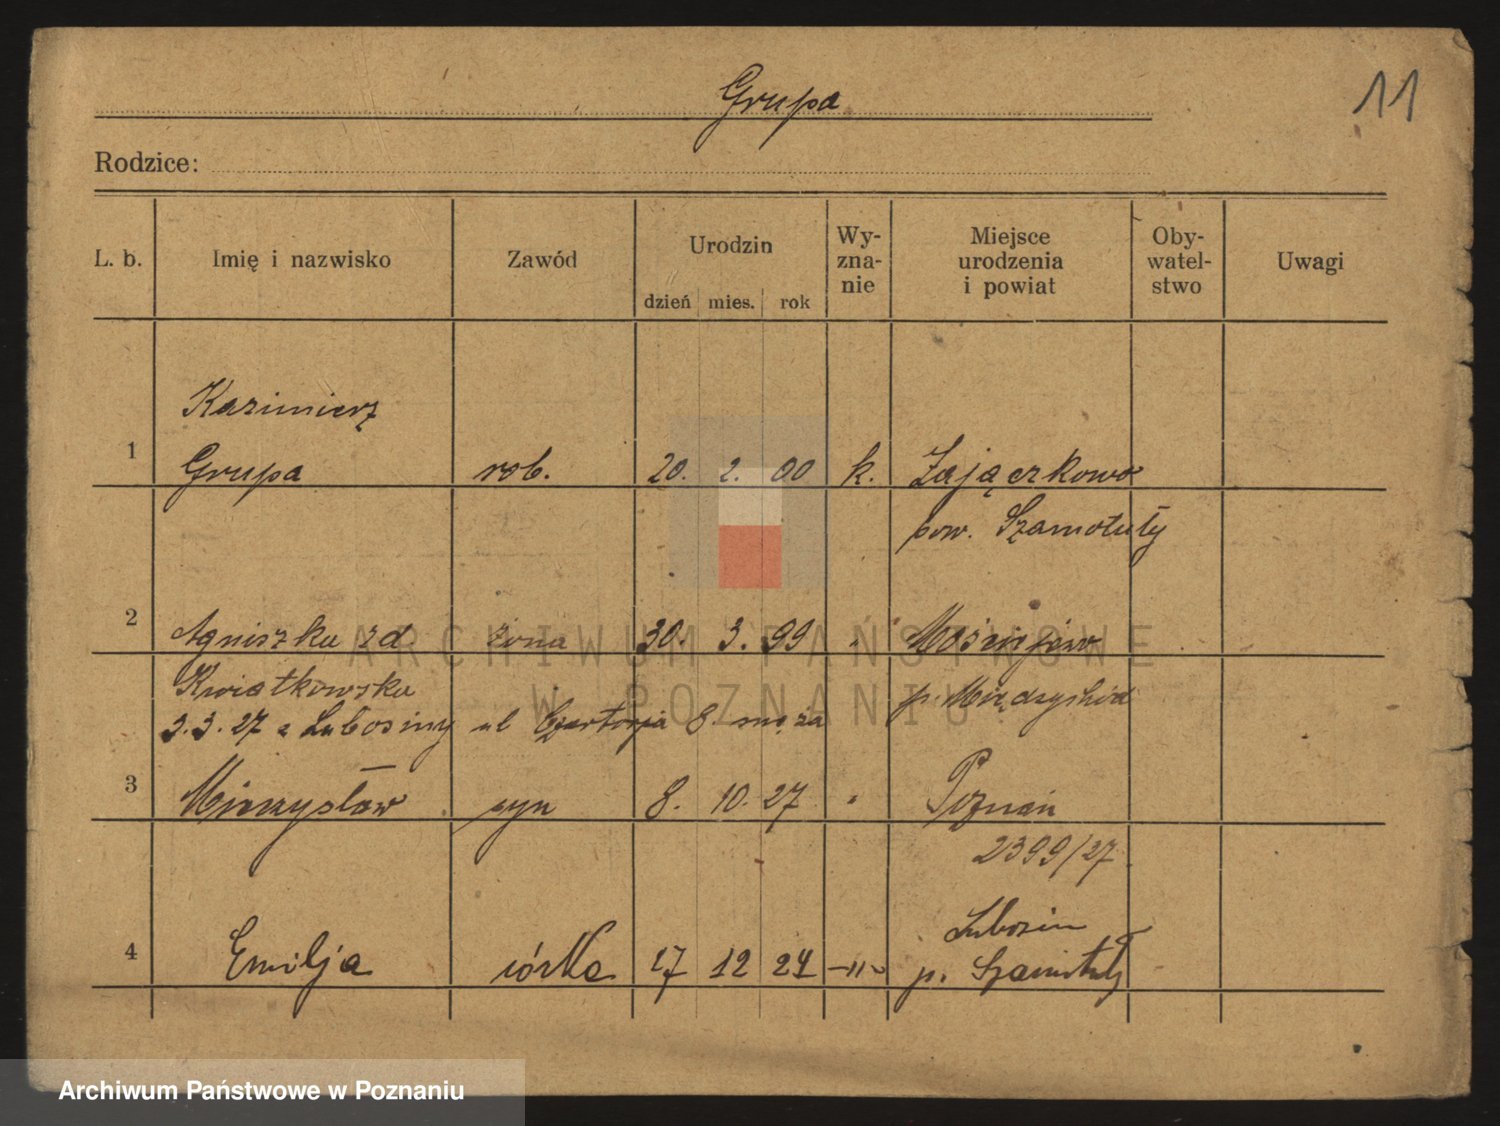 Grupa
11
Rodzice:
L. b. Imię i nazwisko Zawód Urodzin dzień mies. rok Wy-zna-nie Miejsce urodzenia i powiat Oby-watel-stwo Uwagi
Kazimierz
1 Grupa rob. 20. 2. 00 k. Zajączkowo
pow. Szamotuły
2 Agniszka zd żona 30. 3. 99 " Mościejewo
Kwiatkowska p. Międzychód
3.3.27 z Lubosiny ul 8. męża
3 Mieczysław syn 8. 10. 27 " Poznań
2399/27
Lubosin
4 Emilja córka 17 12 24 —"— p. Szamotuły
ARCHIWUM PAŃSTWOWE
W POZNANIU
Archiwum Państwowe w Poznaniu